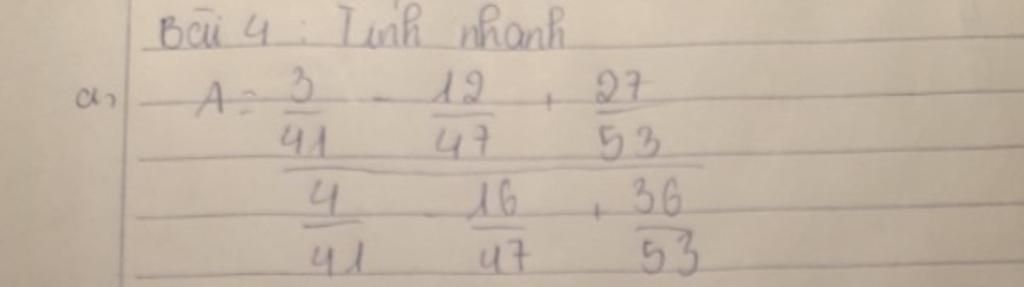 Bài 4 : Tính nhanh
a, A = 3/41 - 12/47 + 27/53
4/41 - 16/47 + 36/53